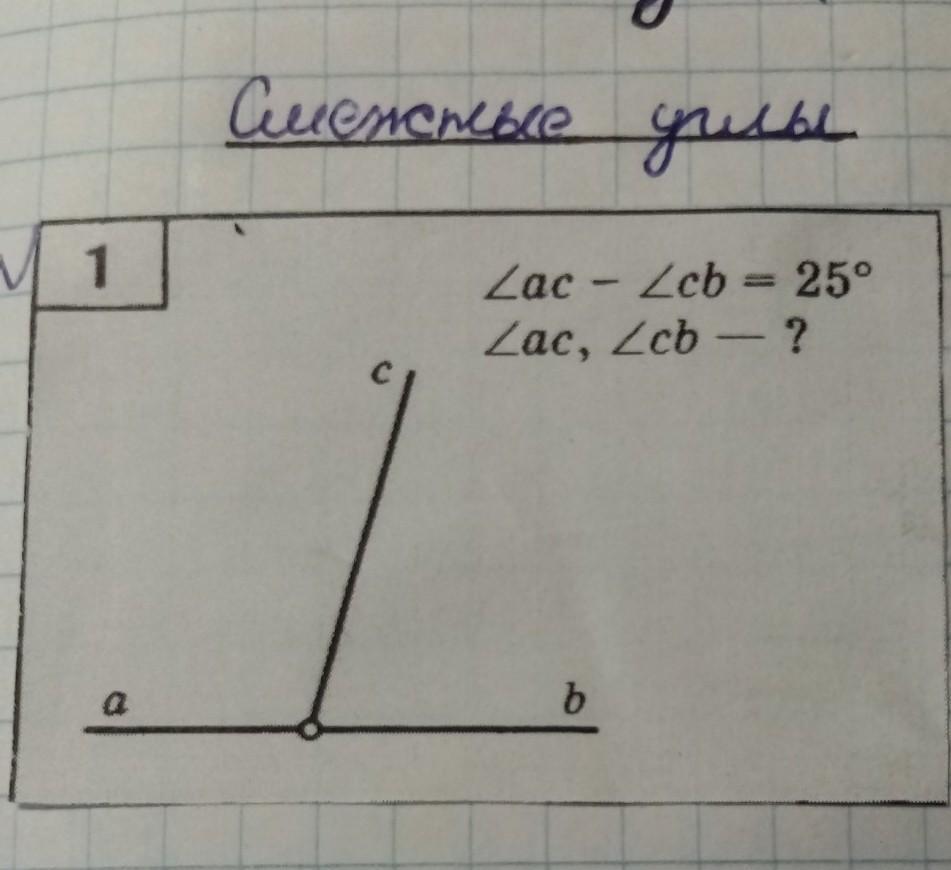 Смежные углы
1
∠ac − ∠cb = 25°
∠ac, ∠cb — ?
c
a
b